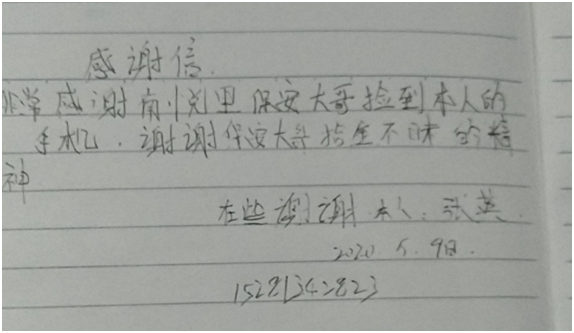 感谢信.
非常感谢南悦里保安大哥捡到本人的
手机.谢谢保安大哥拾金不昧的精
神
在些谢谢.本人:张英.
2020.5.9日.
15281342823